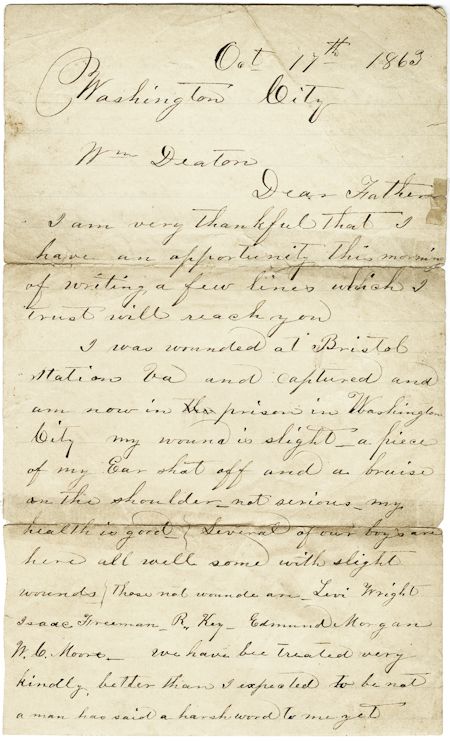 Oct 17th 1863
Washington City
Wm Deaton
Dear Father
I am very thankful that I
have an opportunity this morning
of writing a few lines which I
trust will reach you
I was wounded at Bristol
station Va and captured and
am now in the prison in Washington
City my wound is slight - a piece
of my Ear shot off and a bruise
on the shoulder - not serious - my
health is good { Several of our boys are
here all well some with slight
wounds { those not wounde are - Levi Wright
Isaac Freeman - R. Key - Edmund Morgan
W. C. Moore - we have bee treated very
kindly, better than I expected to be not
a man has said a harsh word to me yet